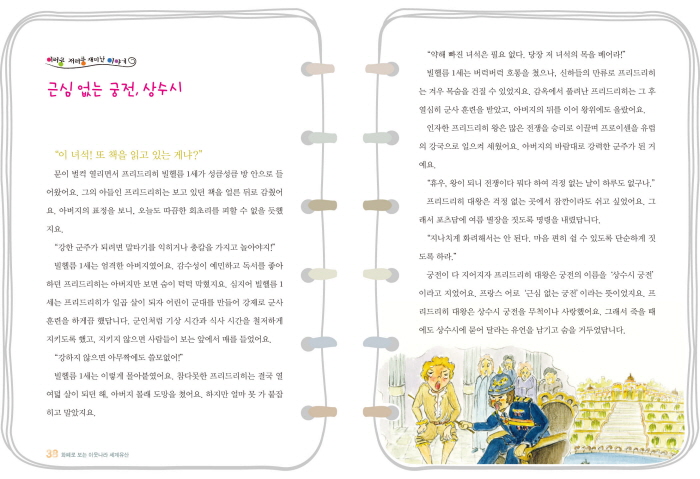 이러쿵 저러쿵 재미난 이야기
근심 없는 궁전, 상수시
“이 녀석! 또 책을 읽고 있는 게냐?”
문이 벌컥 열리면서 프리드리히 빌헬름 1세가 성큼성큼 방 안으로 들
어왔어요. 그의 아들인 프리드리히는 보고 있던 책을 얼른 뒤로 감췄어
요. 아버지의 표정을 보니, 오늘도 따끔한 회초리를 피할 수 없을 듯했
지요.
“강한 군주가 되려면 말타기를 익히거나 총칼을 가지고 놀아야지!”
빌헬름 1세는 엄격한 아버지였어요. 감수성이 예민하고 독서를 좋아
하던 프리드리히는 아버지만 보면 숨이 턱턱 막혔지요. 심지어 빌헬름 1
세는 프리드리히가 일곱 살이 되자 어린이 군대를 만들어 강제로 군사
훈련을 하게끔 했답니다. 군인처럼 기상 시간과 식사 시간을 철저하게
지키도록 했고, 지키지 않으면 사람들이 보는 앞에서 매를 들었어요.
“강하지 않으면 아무짝에도 쓸모없어!”
빌헬름 1세는 이렇게 몰아붙였어요. 참다못한 프리드리히는 결국 열
여덟 살이 되던 해, 아버지 몰래 도망을 쳤어요. 하지만 얼마 못 가 붙잡
히고 말았지요.
38 화폐로 보는 이웃나라 세계유산
“약해 빠진 녀석은 필요 없다. 당장 저 녀석의 목을 베어라!”
빌헬름 1세는 버럭버럭 호통을 쳤으나, 신하들의 만류로 프리드리히
는 겨우 목숨을 건질 수 있었지요. 감옥에서 풀려난 프리드리히는 그 후
열심히 군사 훈련을 받았고, 아버지의 뒤를 이어 왕위에도 올랐어요.
인자한 프리드리히 왕은 많은 전쟁을 승리로 이끌며 프로이센을 유럽
의 강국으로 일으켜 세웠어요. 아버지의 바람대로 강력한 군주가 된 거
예요.
“휴우, 왕이 되니 전쟁이다 뭐다 하여 걱정 없는 날이 하루도 없구나.”
프리드리히 대왕은 걱정 없는 곳에서 잠깐이라도 쉬고 싶었어요. 그
래서 포츠담에 여름 별장을 짓도록 명령을 내렸답니다.
“지나치게 화려해서는 안 된다. 마음 편히 쉴 수 있도록 단순하게 짓
도록 하라.”
궁전이 다 지어지자 프리드리히 대왕은 궁전의 이름을 ‘상수시 궁전’
이라고 지었어요. 프랑스 어로 ‘근심 없는 궁전’이라는 뜻이었지요. 프
리드리히 대왕은 상수시 궁전을 무척이나 사랑했어요. 그래서 죽을 때
에도 상수시에 묻어 달라는 유언을 남기고 숨을 거두었답니다.